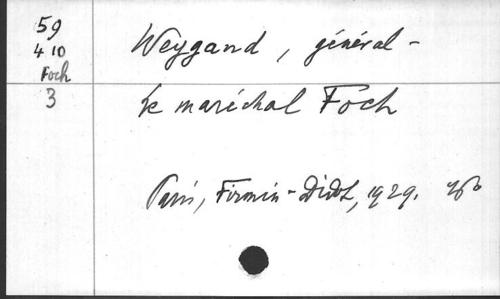 59
410
Foch
3
Weygand, général -
Le maréchal Foch
Paris, Firmin-Didot, 1929.